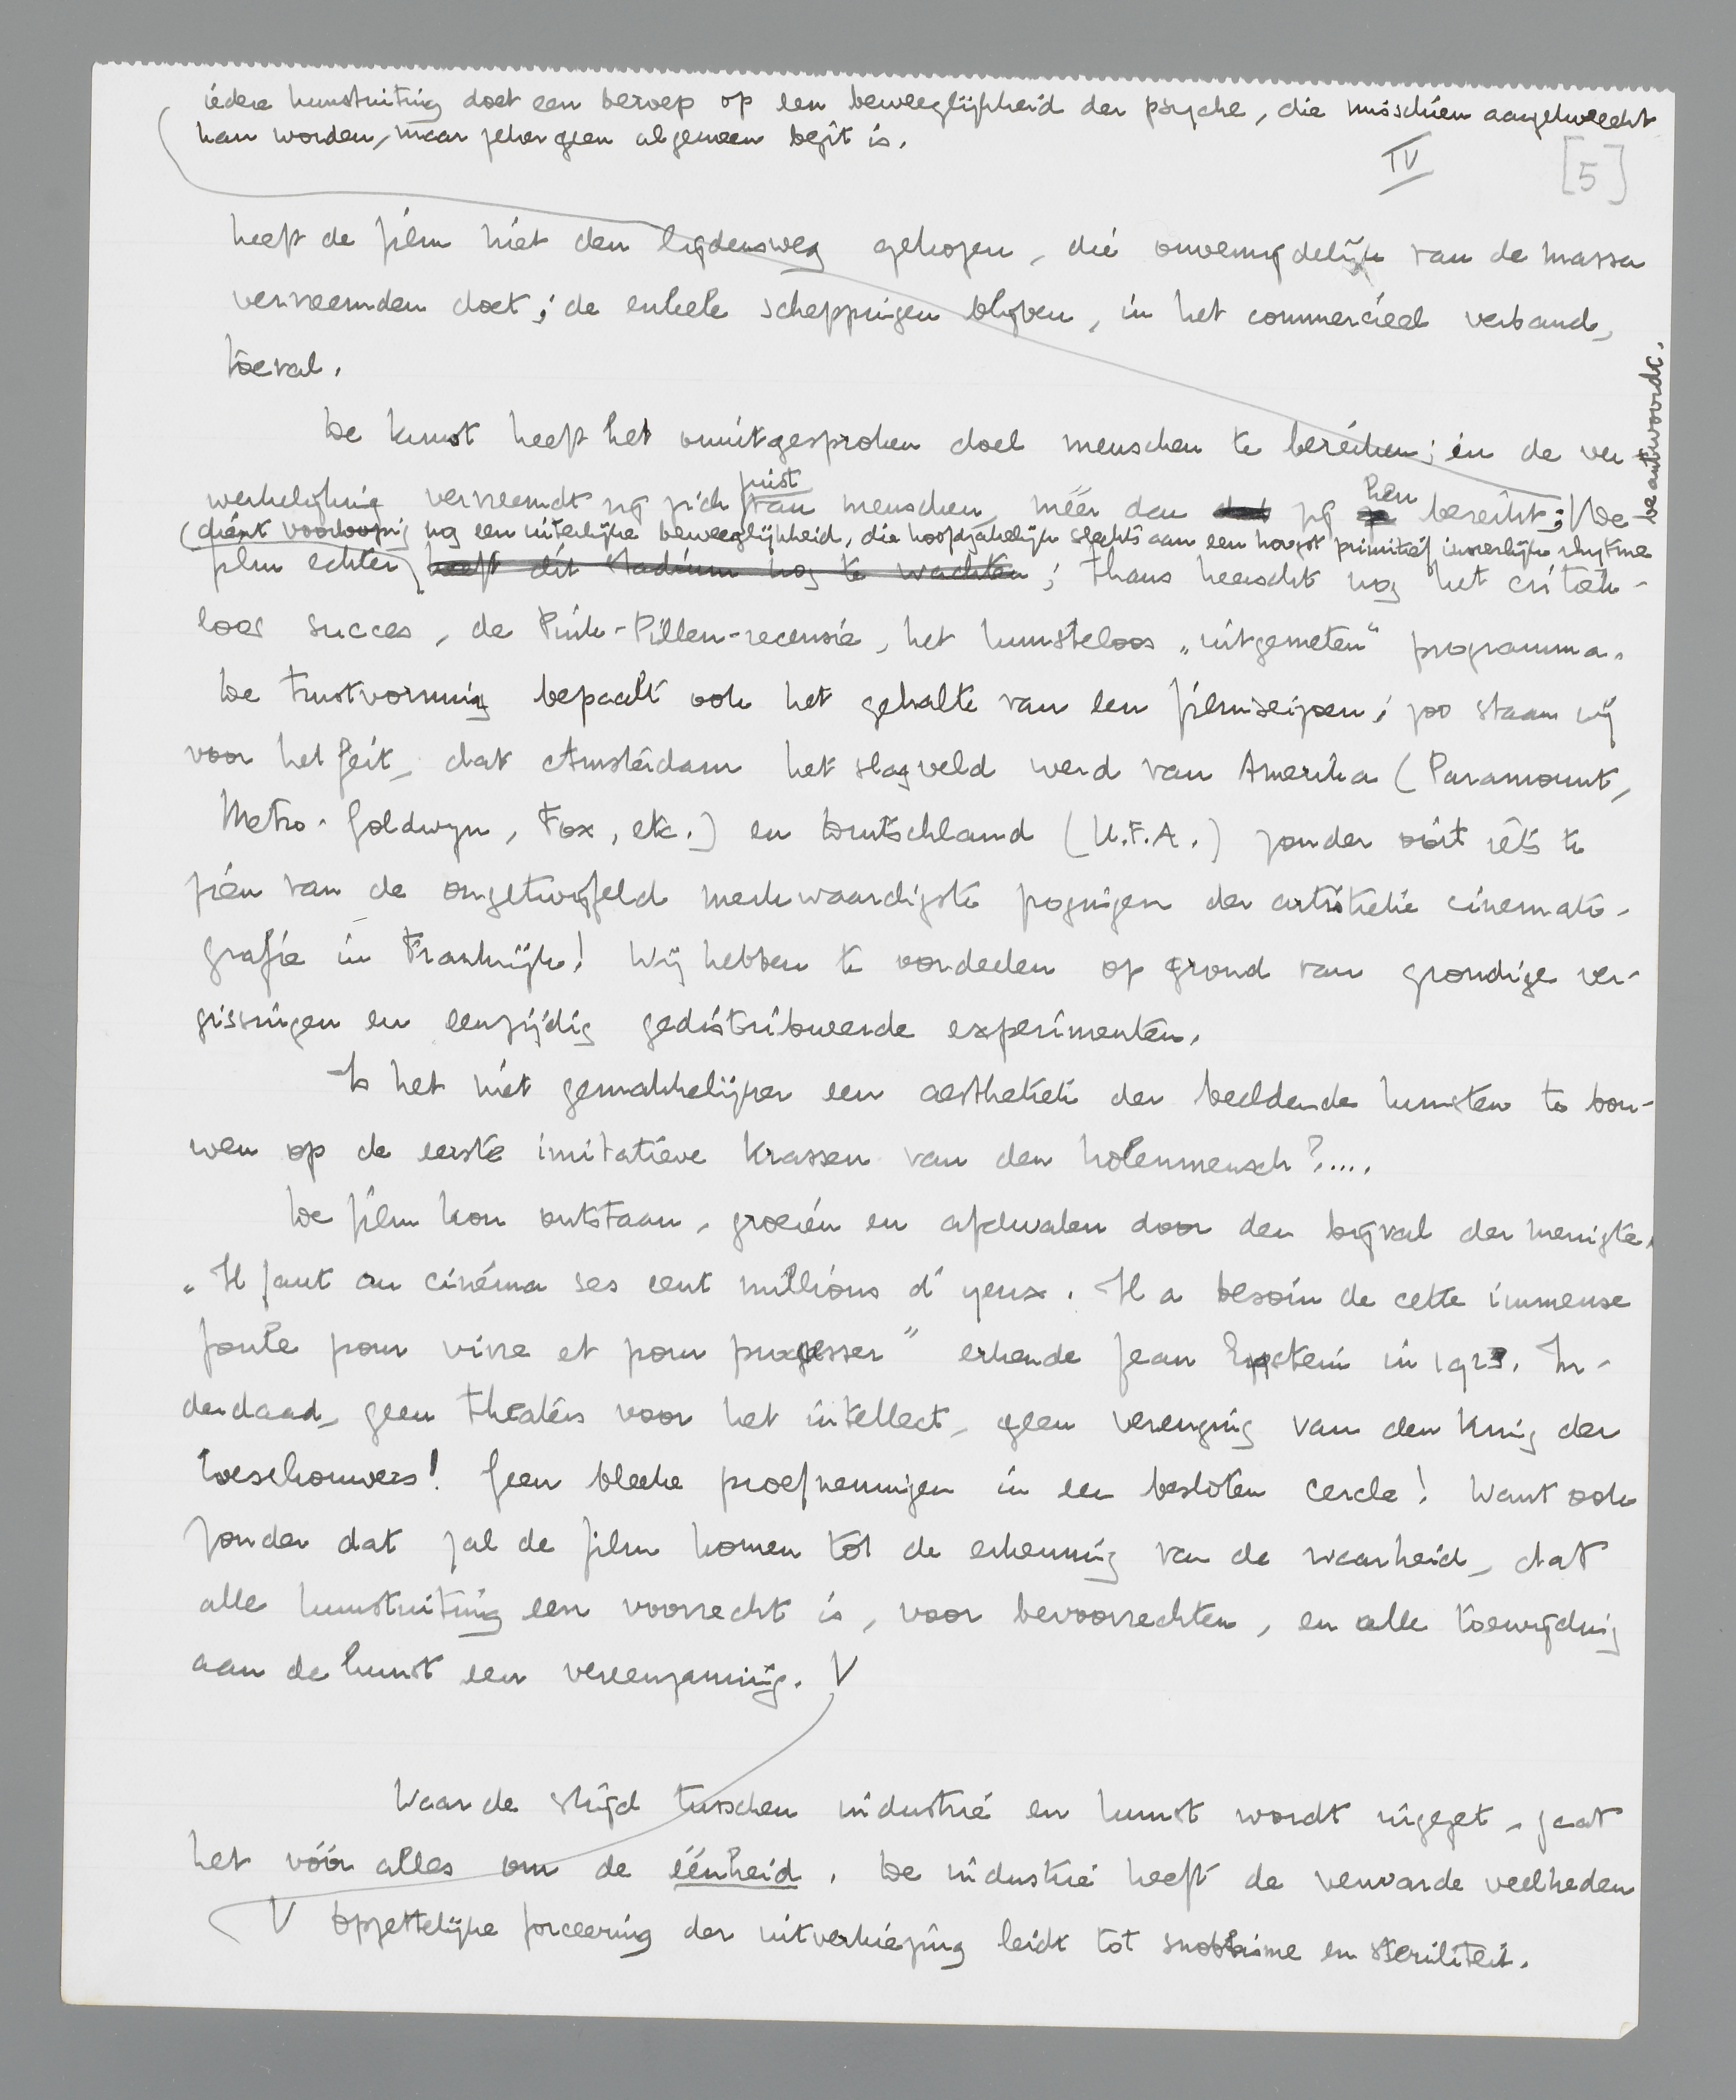 iedere kunstuiting doet een beroep op een beweeglijkheid der psyche, die misschien aangekweekt
kan worden, maar zeker geen algemeen bezit is.
IV
[5]
heeft de film niet den lijdensweg gekozen, die onvermijdelijk van de massa
vervreemden doet; de enkele scheppingen blijven, in het commercieel verband,
toeval.
De kunst heeft het onuitgesproken doel menschen te bereiken; in de ver-
werkelijking vervreemdt zij zich juist van menschen, méér dan zij hen bereikt; De
(dient voorloopig nog een uiterlijke beweeglijkheid, die hoofdzakelijk slechts aan een hoogst primitief innerlijk rhytme
beantwoordt.
film echter heeft dit stadium nog te wachten; thans heerscht nog het critiek-
loos succes, de Pink-Pillen-recensie, het kunsteloos „uitgemeten" programma.
De trustvorming bepaalt ook het gehalte van een filmseizoen; zoo staan wij
voor het feit, dat Amsterdam het slagveld werd van Amerika (Paramount,
Metro-Goldwyn, Fox, etc.) en Deutschland (U.F.A.) zonder ooit iets te
zien van de ongetwijfeld merkwaardigste pogingen der artistieke cinemato-
grafie in Frankrijk! Wij hebben te oordeelen op grond van grondige ver-
gissingen en eenzijdig gedistribueerde experimenten.
Is het niet gemakkelijker een aesthetiek der beeldende kunsten te bou-
wen op de eerste imitatieve krassen van den holenmensch?....
De film kon ontstaan, groeien en afdwalen door den bijval der menigte.
„Il faut au cinéma ses cent millions d'yeux. Il a besoin de cette immense
foule pour vivre et pour progresser" erkende Jean Epstein in 1923. In-
derdaad, geen theaters voor het intellect, geen verenging van den kring der
toeschouwers! Geen bleeke proefnemingen in een besloten cercle! Want ook
zonder dat zal de film komen tot de erkenning van de waarheid, dat
alle kunstuiting een voorrecht is, voor bevoorrechten, en alle toewijding
aan de kunst een vereenzaming. V
Waar de strijd tusschen industrie en kunst wordt ingezet, gaat
het vóór alles om de éénheid. De industrie heeft de verwarde veelheden
V Opzettelijke forceering der uitverkiezing leidt tot snobisme en steriliteit.